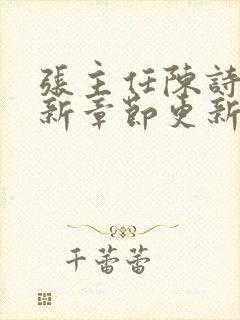 張主任陳詩
新章節更新
千蕾蕾